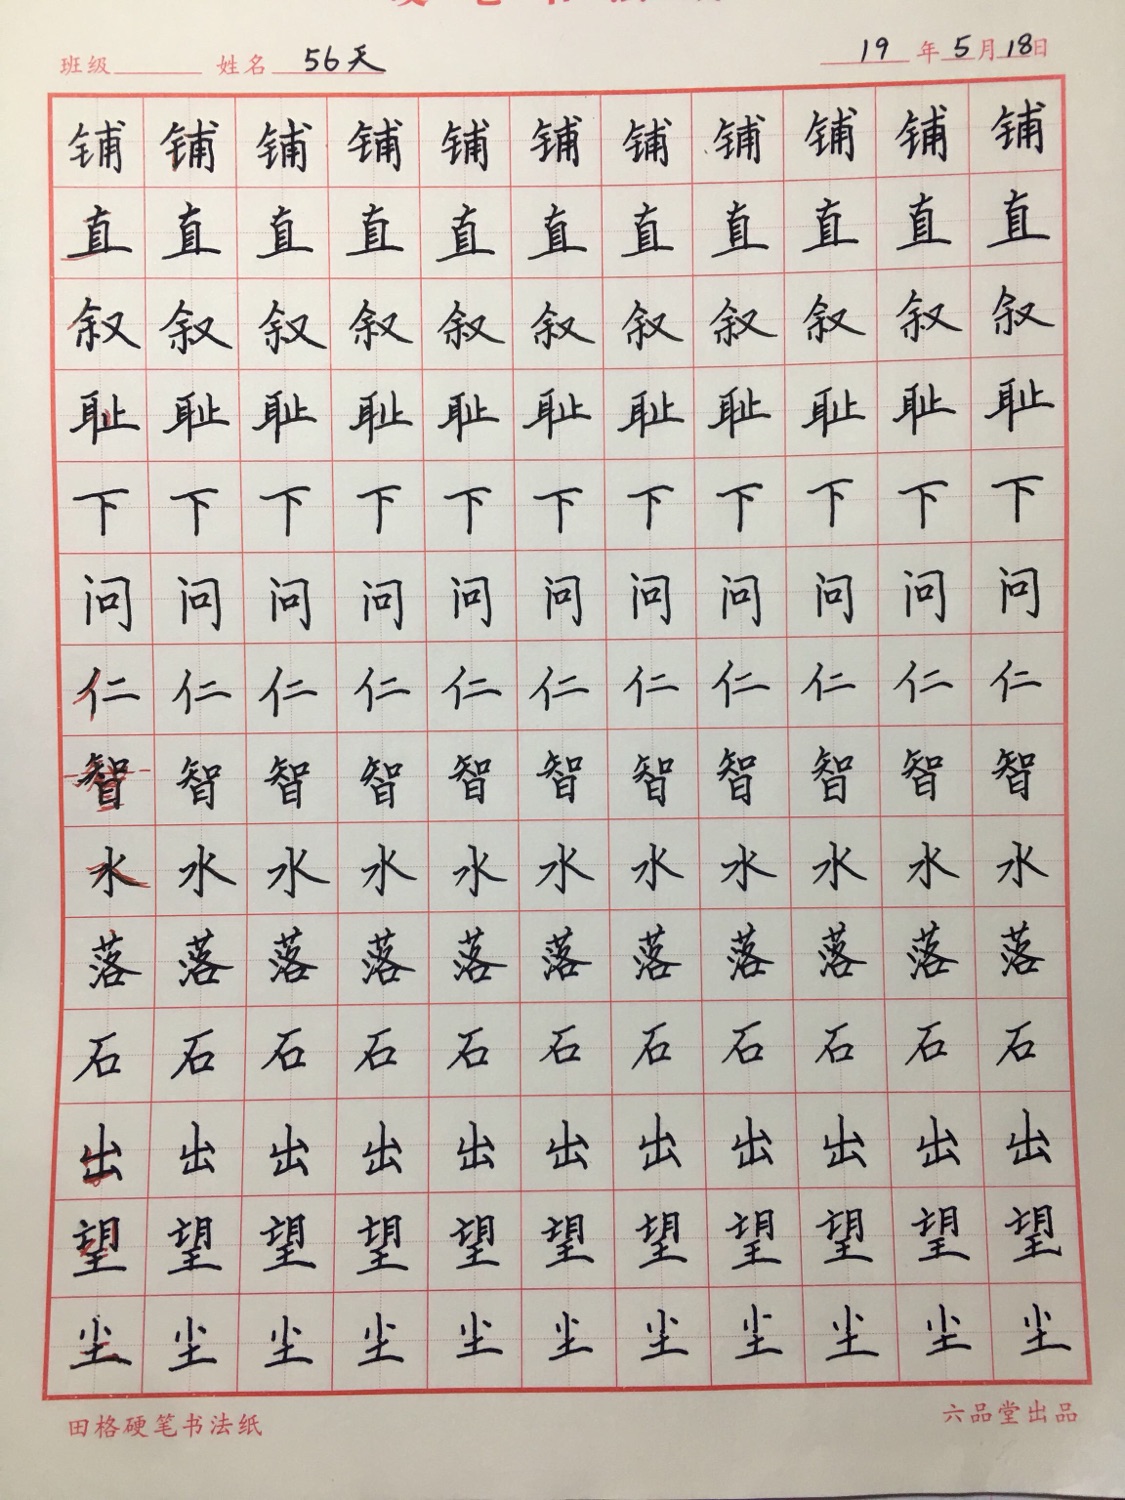 班级 姓名 56天 19年5月18日
铺铺铺铺铺铺铺铺铺铺铺
直直直直直直直直直直直
叙叙叙叙叙叙叙叙叙叙叙
耻耻耻耻耻耻耻耻耻耻耻
下下下下下下下下下下下
问问问问问问问问问问问
仁仁仁仁仁仁仁仁仁仁仁
智智智智智智智智智智智
水水水水水水水水水水水
落落落落落落落落落落落
石石石石石石石石石石石
出出出出出出出出出出出
望望望望望望望望望望望
尘尘尘尘尘尘尘尘尘尘尘
田格硬笔书法纸 六品堂出品